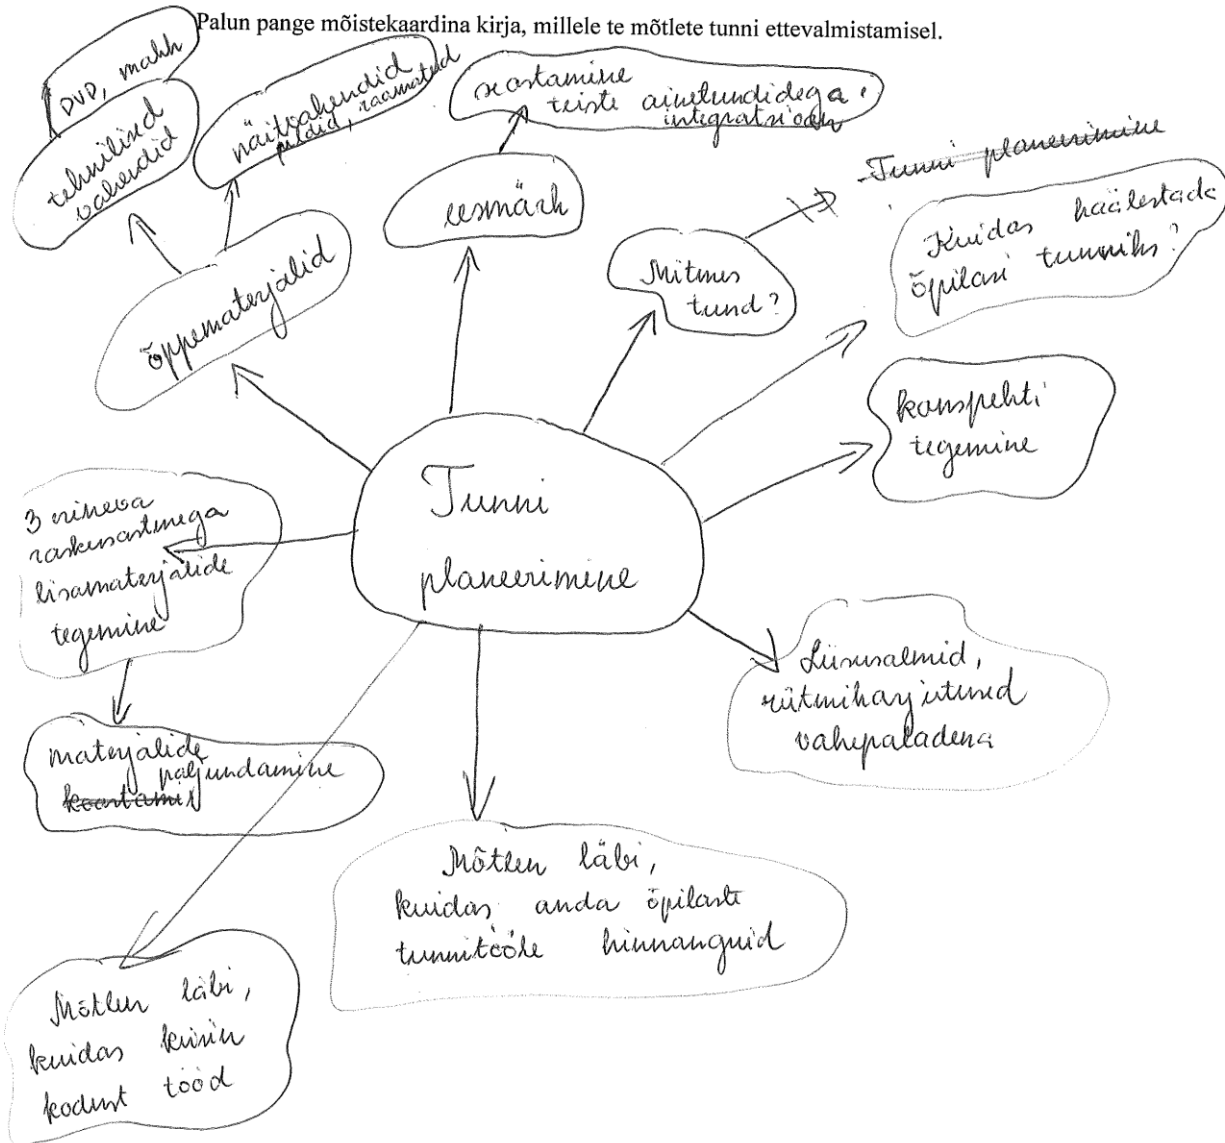 Palun pange mõistekaardina kirja, millele te mõtlete tunni ettevalmistamisel.
DVD, makk
tehnilised
vahendid
näitvahendid
pildid, raamatud
õppematerjalid
seostamine
teiste ainetundidega,
integratsioon
eesmärk
Mitmes
tund?
Tunni planeerimine
Kuidas häälestada
õpilasi tunniks?
konspekti
tegemine
Tunni
planeerimine
3 erineva
raskusastmega
lisamaterjalide
tegemine
materjalide
paljundamine
Liisusalmid,
rütmiharjutused
vahepaladena
Mõtlen läbi,
kuidas anda õpilaste
tunnitööle hinnanguid
Mõtlen läbi,
kuidas küsin
kodust tööd